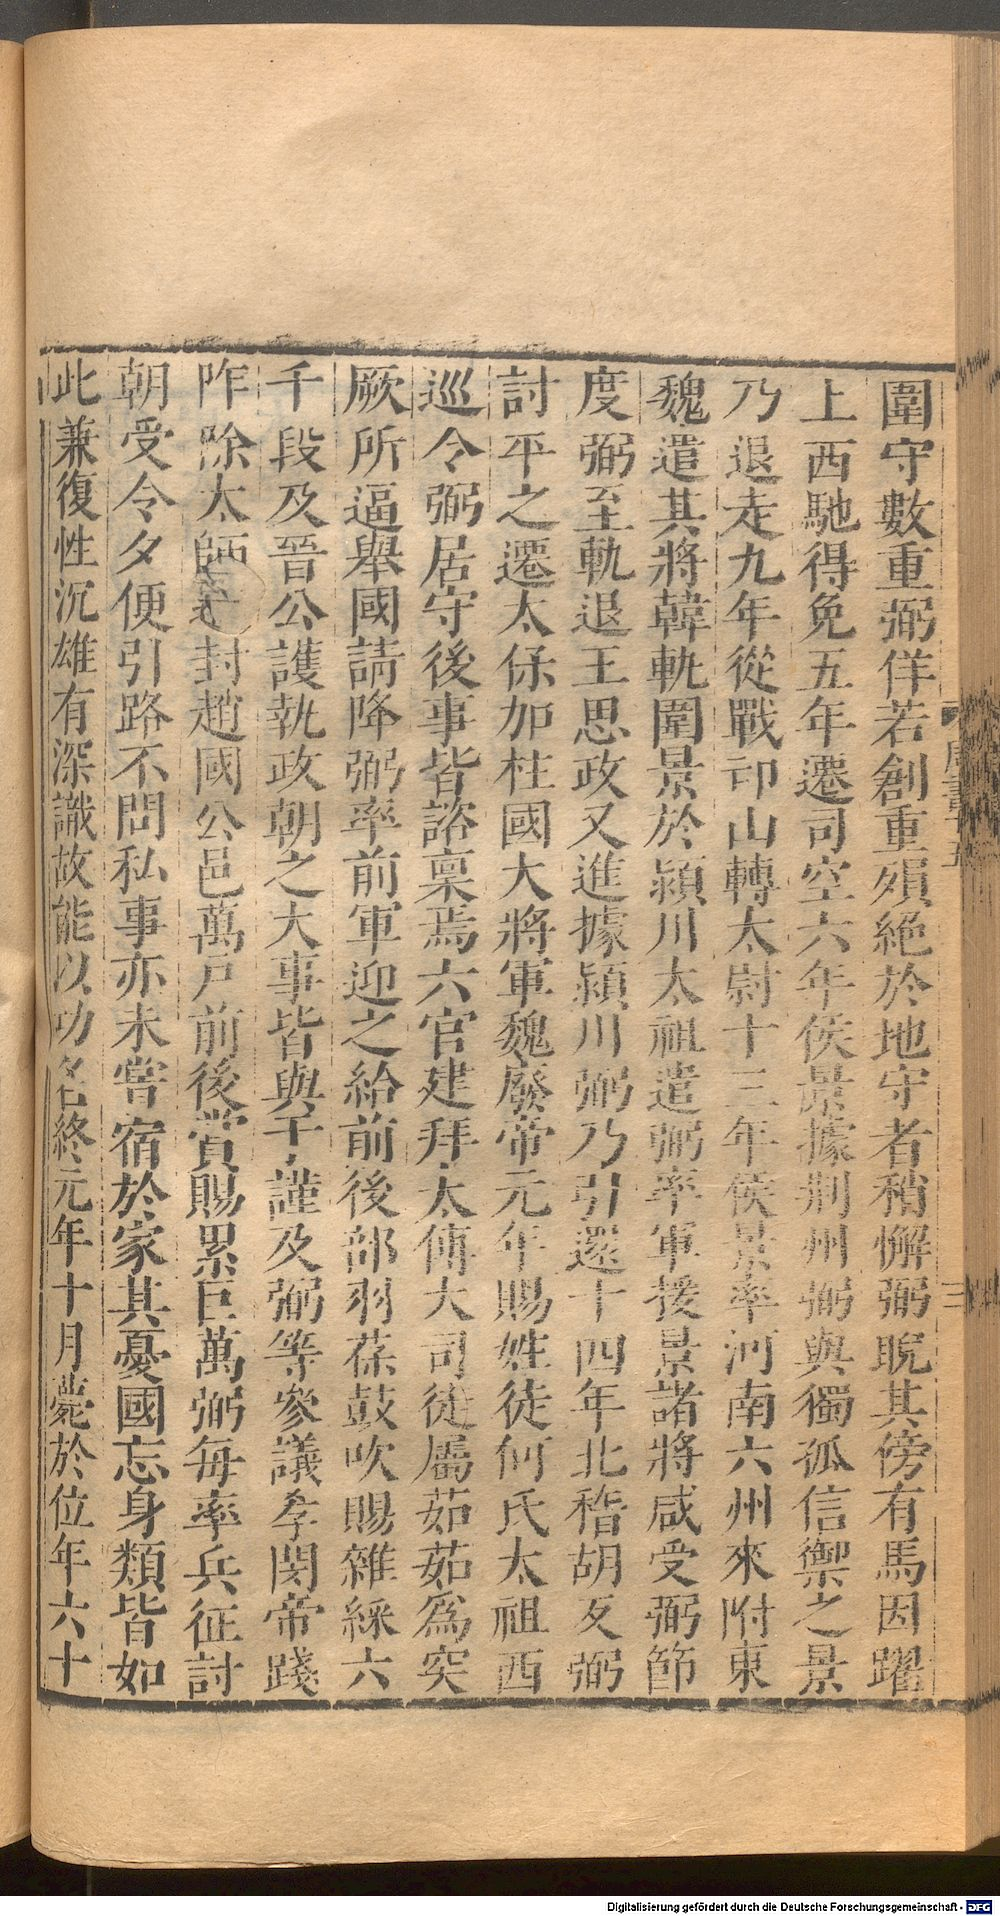 圍守數重弼佯若創重殞絕於地守者稍懈弼睨其傍有馬因躍
上西馳得免五年遷司空六年侯景據荆州弼與獨孤信禦之景
乃退走九年從戰邙山轉太尉十三年侯景率河南六州來附東
魏遣其將韓軌圍景於潁川太祖遣弼率軍援景諸將咸受弼節
度弼至軌退王思政又進據潁川弼乃引還十四年北稽胡反弼
討平之遷太保加柱國大將軍魏廢帝元年賜姓徒何氏太祖西
巡令弼居守後事皆諮稟焉六官建拜太傅大司徒屬茹茹爲突
厥所逼舉國請降弼率前軍迎之給前後部羽葆鼓吹賜雜綵六
千段及晉公護執政朝之大事皆與于謹及弼等參議孝閔帝踐
阼除太師進封趙國公邑萬戶前後賞賜累巨萬弼每率兵征討
朝受令夕便引路不問私事亦未嘗宿於家其憂國忘身類皆如
此兼復性沉雄有深識故能以功名終元年十月薨於位年六十
周書十五
Digitalisierung gefördert durch die Deutsche Forschungsgemeinschaft - DFG